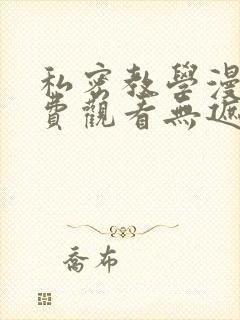 私密教學漫
費觀看無遮
喬布